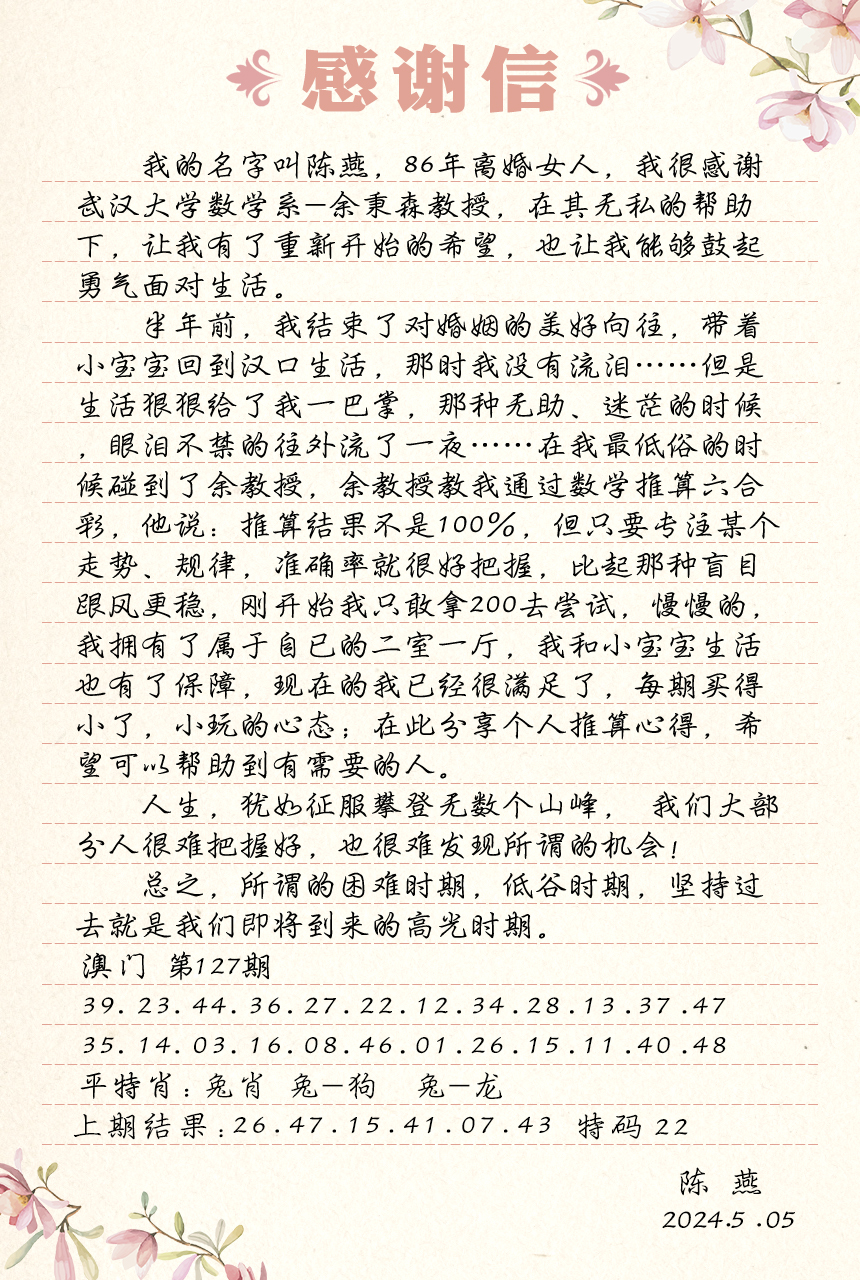 感谢信
我的名字叫陈燕，86年离婚女人，我很感谢
武汉大学数学系—余秉森教授，在其无私的帮助
下，让我有了重新开始的希望，也让我能够鼓起
勇气面对生活。
半年前，我结束了对婚姻的美好向往，带着
小宝宝回到汉口生活，那时我没有流泪……但是
生活狠狠给了我一巴掌，那种无助、迷茫的时候
，眼泪不禁的往外流了一夜……在我最低俗的时
候碰到了余教授，余教授教我通过数学推算六合
彩，他说：推算结果不是100%，但只要专注某个
走势、规律，准确率就很好把握，比起那种盲目
跟风更稳，刚开始我只敢拿200去尝试，慢慢的，
我拥有了属于自已的二室一厅，我和小宝宝生活
也有了保障，现在的我已经很满足了，每期买得
小了，小玩的心态；在此分享个人推算心得，希
望可以帮助到有需要的人。
人生，犹如征服攀登无数个山峰， 我们大部
分人很难把握好，也很难发现所谓的机会！
总之，所谓的困难时期，低谷时期，坚持过
去就是我们即将到来的高光时期。
澳门 第127期
39.23.44.36.27.22.12.34.28.13.37.47
35.14.03.16.08.46.01.26.15.11.40.48
平特肖：兔肖 兔—狗 兔—龙
上期结果：26.47.15.41.07.43 特码 22
陈 燕
2024.5.05